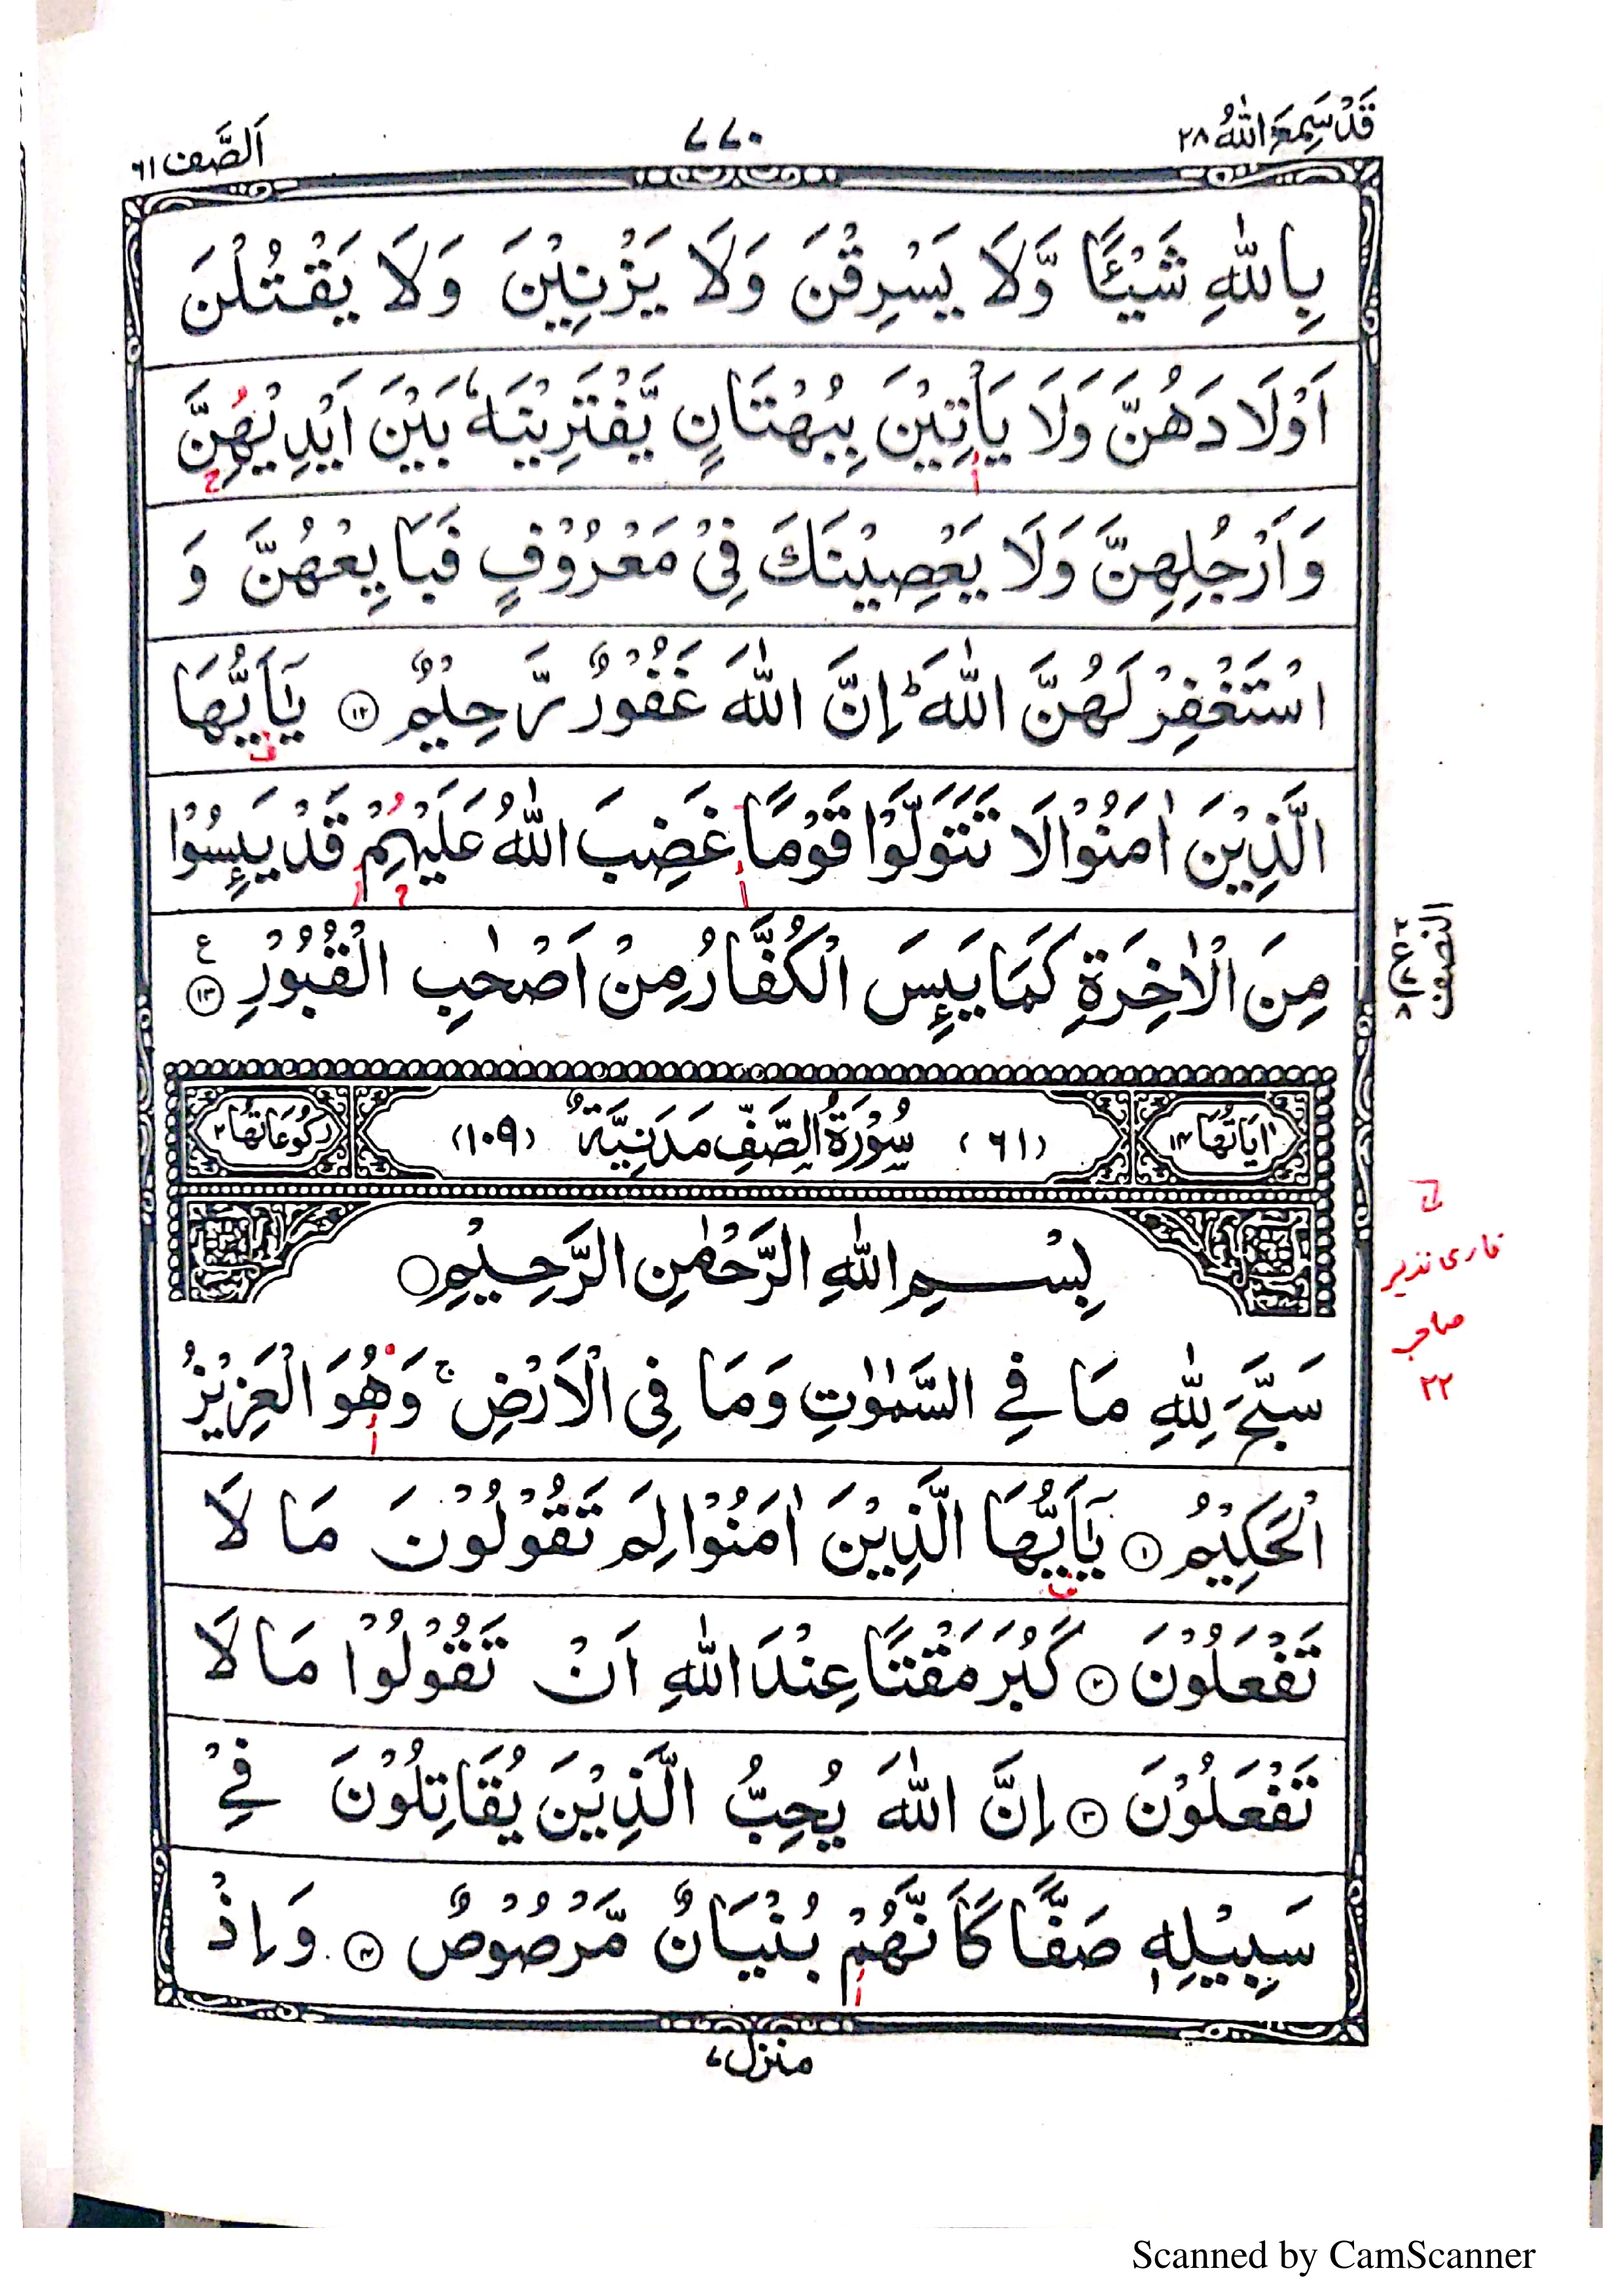 قَدْ سَمِعَ اللهُ ٢٨
٧٧٠
اَلصَّف ٦١
بِاللّٰهِ شَيْـًٔا وَّلَا يَسْرِقْنَ وَلَا يَزْنِيْنَ وَلَا يَقْتُلْنَ
اَوْلَادَهُنَّ وَلَا يَأْتِيْنَ بِبُهْتَانٍ يَّفْتَرِيْنَهٗ بَيْنَ اَيْدِيْهِنَّ
وَاَرْجُلِهِنَّ وَلَا يَعْصِيْنَكَ فِيْ مَعْرُوْفٍ فَبَايِعْهُنَّ وَ
اسْتَغْفِرْ لَهُنَّ اللّٰهَ ؕ اِنَّ اللّٰهَ غَفُوْرٌ رَّحِيْمٌ ۝١٢ يٰۤاَيُّهَا
الَّذِيْنَ اٰمَنُوْا لَا تَتَوَلَّوْا قَوْمًا غَضِبَ اللّٰهُ عَلَيْهِمْ قَدْ يَىِٕسُوْا
مِنَ الْاٰخِرَةِ كَمَا يَىِٕسَ الْكُفَّارُ مِنْ اَصْحٰبِ الْقُبُوْرِ ۝١٣ ع
النصف
اٰيَاتُهَا ١٤ (٦١) سُوْرَةُ الصَّفِّ مَدَنِيَّةٌ (١٠٩) رُكُوْعَاتُهَا ٢
بِسْمِ اللّٰهِ الرَّحْمٰنِ الرَّحِيْمِ
سَبَّحَ لِلّٰهِ مَا فِي السَّمٰوٰتِ وَمَا فِي الْاَرْضِ ۚ وَهُوَ الْعَزِيْزُ
الْحَكِيْمُ ۝١ يٰۤاَيُّهَا الَّذِيْنَ اٰمَنُوْا لِمَ تَقُوْلُوْنَ مَا لَا
تَفْعَلُوْنَ ۝٢ كَبُرَ مَقْتًا عِنْدَ اللّٰهِ اَنْ تَقُوْلُوْا مَا لَا
تَفْعَلُوْنَ ۝٣ اِنَّ اللّٰهَ يُحِبُّ الَّذِيْنَ يُقَاتِلُوْنَ فِيْ
سَبِيْلِهٖ صَفًّا كَاَنَّهُمْ بُنْيَانٌ مَّرْصُوْصٌ ۝٤ وَاِذْ
قاری نذیر
صاحب
٢٢
منزل ٧
Scanned by CamScanner